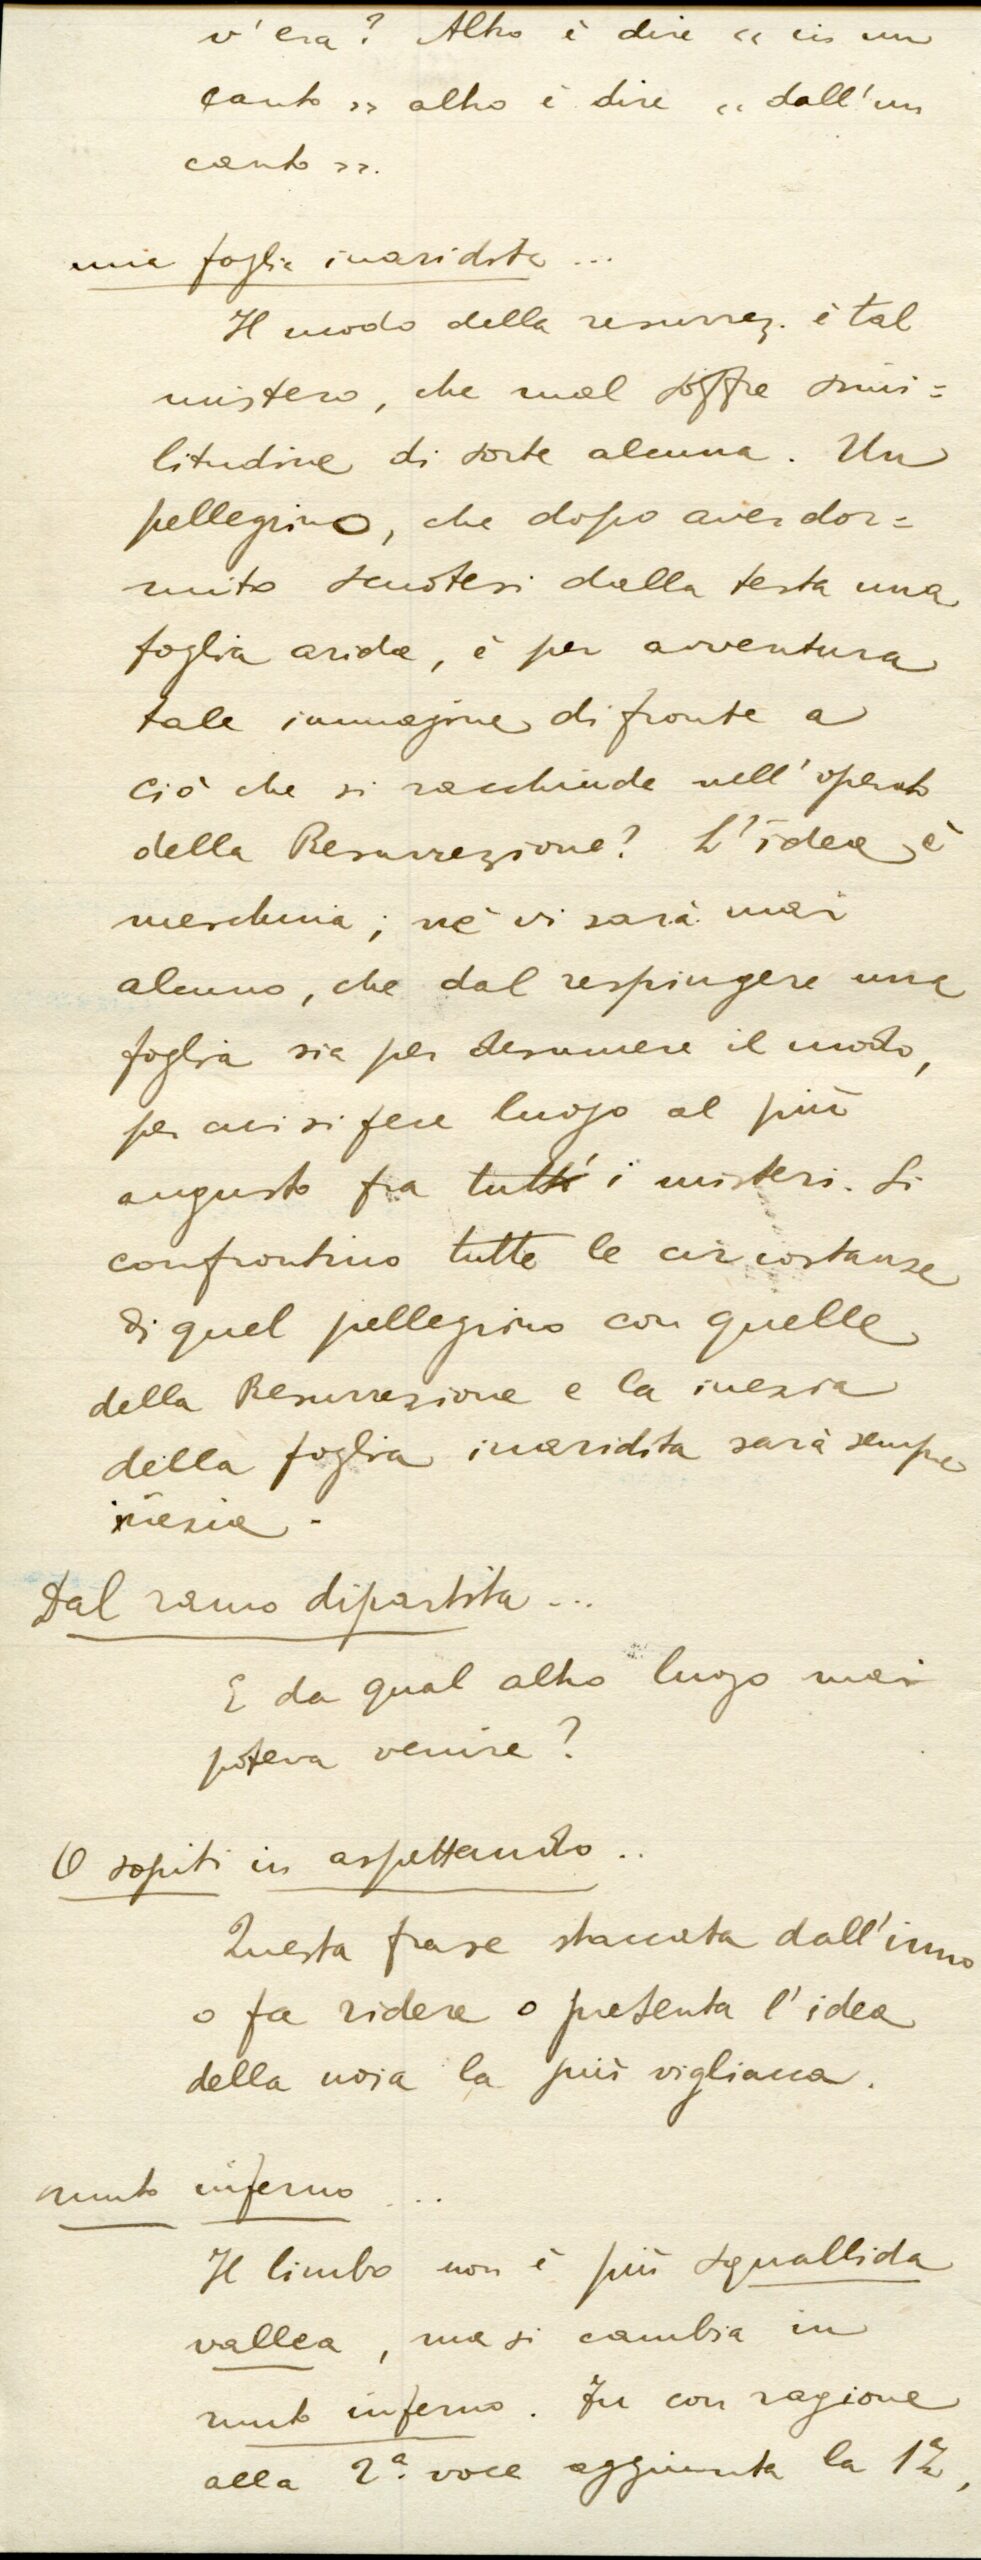 v'era? Altro è dire « in un
canto » altro è dire « dall'un
canto ».
una foglia inaridita ...
Il modo della resurrez. è tal
mistero, che mal soffre simi=
litudine di sorte alcuna. Un
pellegrino, che dopo aver dor=
mito scuotesi dalla testa una
foglia arida, è per avventura
tale immagine di fronte a
ciò che si racchiude nell'operato
della Resurrezione? L'idea è
meschina; nè vi sarà mai
alcuno, che dal respingere una
foglia sia per desumere il modo,
per cui si fece luogo al più
augusto fra tutti i misteri. Si
confrontino tutte le circostanze
di quel pellegrino con quelle
della Resurrezione e la inezia
della foglia inaridita sarà sempre
inezia.
Dal ramo dipartita ...
E da qual altro luogo mai
poteva venire?
O sopiti in aspettando ..
Questa frase staccata dall'inno
o fa ridere o presenta l'idea
della noia la più vigliacca.
muto inferno ...
Il limbo non è più squallida
vallea, ma si cambia in
muto inferno. Fu con ragione
alla 2ª. voce aggiunta la 1ª,